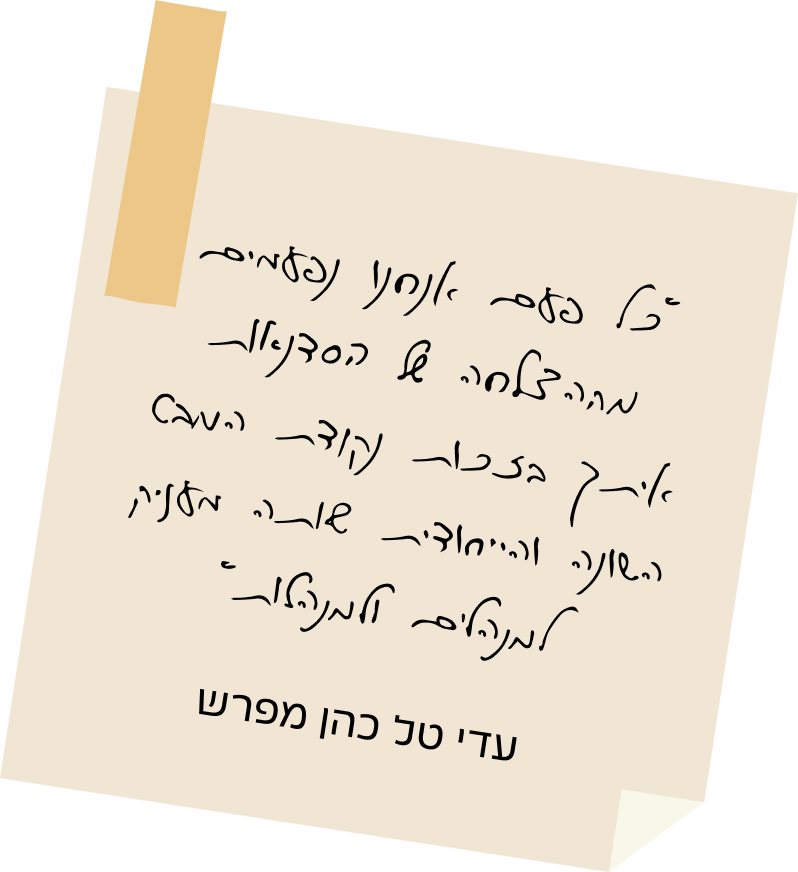 "כל פעם אנחנו נפעמים
מההצלחה של הסדנאות
איתך בזכות נקודת המבט
השונה והייחודית שאתה מעניק
למנהלים ולמנהלות"
עדי טל כהן מפרש